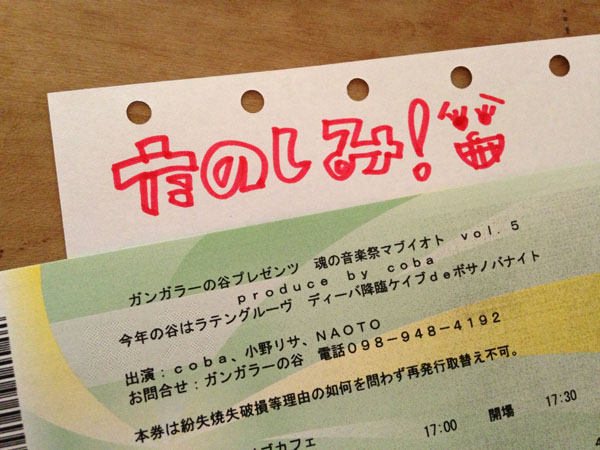 たのしみ!
ガンガラーの谷プレゼンツ 魂の音楽祭マブイオト vol.5
produce by coba
今年の谷はラテングルーヴ ディーバ降臨ケイブdeボサノバナイト
出演:coba、小野リサ、NAOTO
お問合せ:ガンガラーの谷 電話098-948-4192
本券は紛失焼失破損等理由の如何を問わず再発行取替え不可。
ブカフェ 17:00 開場 17:30